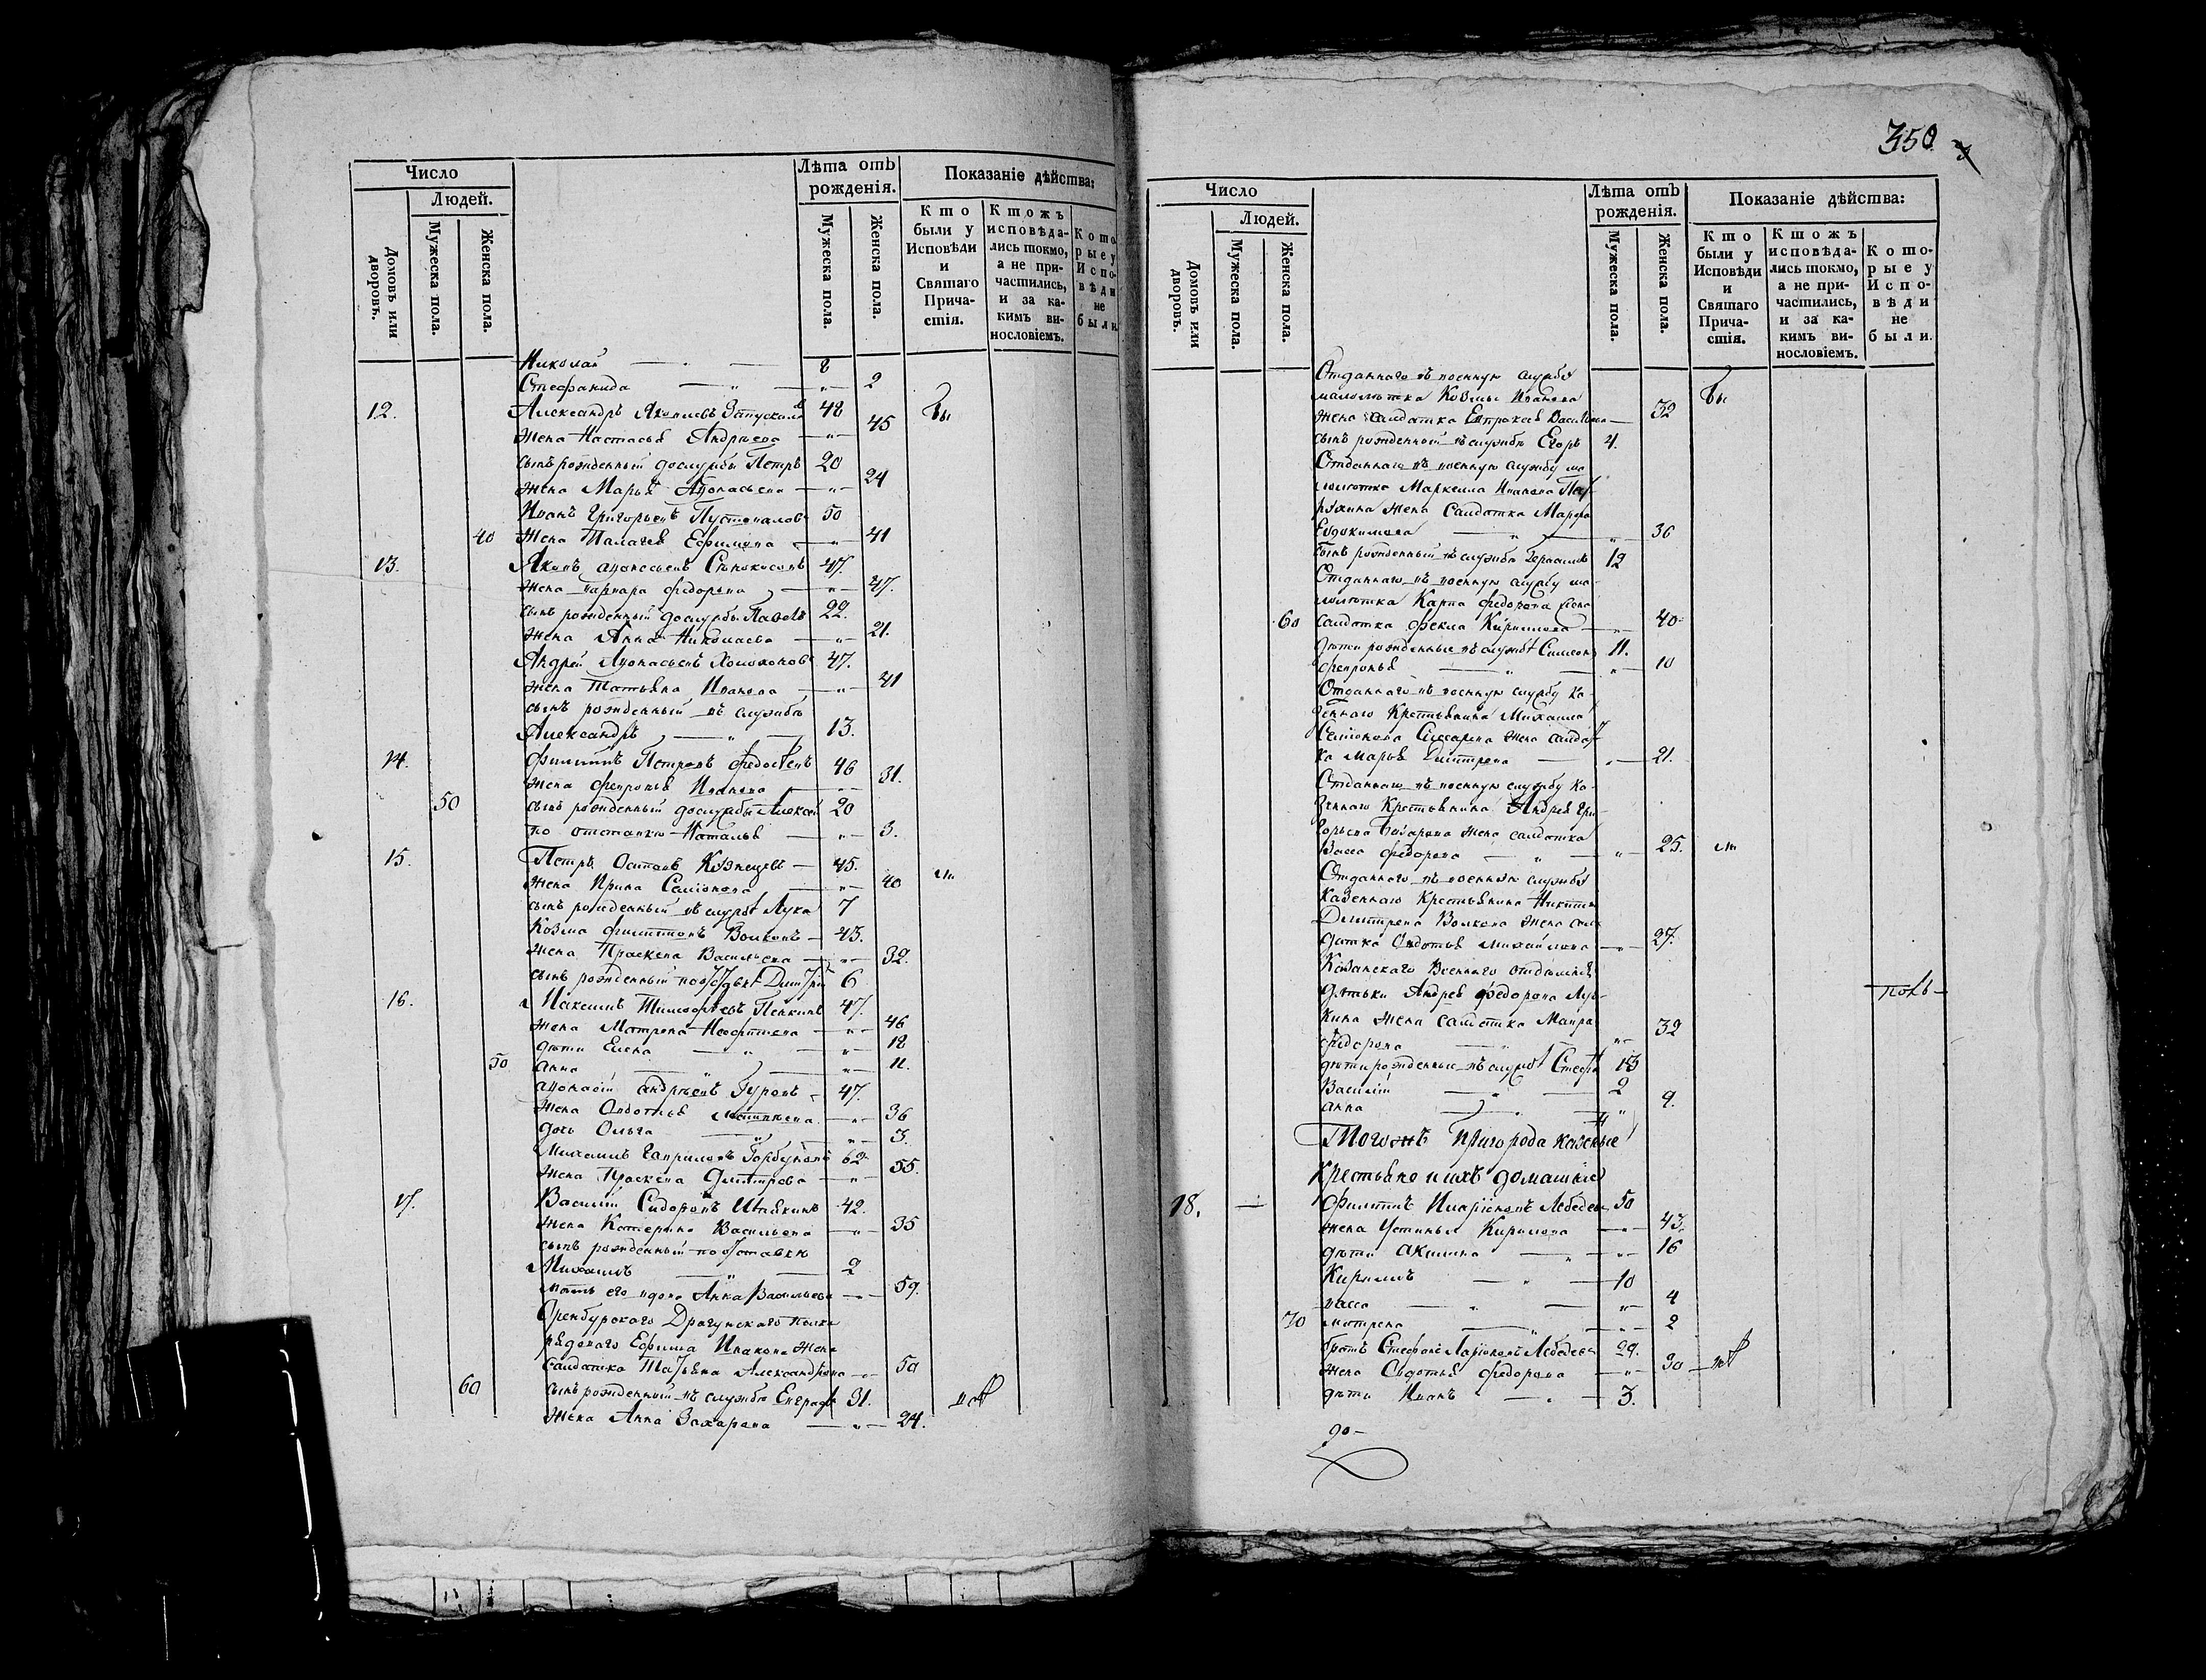 Число
Людей.
Домовъ или дворовъ.
Мужеска пола.
Женска пола.
Лѣта отъ рожденія.
Мужеска пола.
Женска пола.
Показаніе дѣйства:
Кто были у Исповѣди и Святаго Причастія.
Ктожъ исповѣдались токмо, а не причастились, и за какимъ винословіемъ.
Которые у Исповѣди не были.
Николай — „ — 8
Стефанида — „ — 2
12. Александръ Яковлевъ 48 бы
жена Настасья Андреева — „ — 45
сынъ рожденный дослужбы Петръ 20
жена Марья Афонасьева — „ — 24
Иванъ Григорьевъ Пустоваловъ 50
40 жена Палагея Ефимова — „ — 41
13. Яковъ Афонасьевъ Сенокосовъ 47.
жена Варвара Федорова — „ — 47.
сынъ рожденный дослужбы Павелъ 22.
жена Анна Николаева — „ — 21.
Андрей Афонасьевъ 47.
жена Татьяна Иванова — „ — 41
сынъ рожденный въ службѣ
Александръ — „ — 13.
14. Филиппъ Петровъ Федосѣевъ 46
жена Февронья Иванова — „ — 31.
50 сынъ рожденный дослужбы Алексей 20
по отставке Наталья — „ — 3.
15. Петръ Осиповъ Кузнецовъ — 45. ли
жена Ирина Семионова — „ — 40
сынъ рожденный въ службѣ Лука 7
Козма Филипповъ Волковъ — 43.
жена Праскева Васильева — „ — 32.
сынъ рожденный Дмитрій 6
16. Максимъ Тимофеевъ Пенкинъ 47.
жена Матрена Неофитова — „ — 46
дети Елена — „ — 12
50 Анна — „ — 11.
Афонасій Андреевъ Гуровъ 47.
жена Авдотья — „ — 36
дочь Ольга — „ — 3.
Михаилъ Гавриловъ Горбуновъ 62
жена Праскева Дмитрева — „ — 55.
17. Василий Сидоровъ 42.
жена Катерина Васильева — „ — 35
сынъ рожденный по отставке
Михаилъ — „ — 2
мать его вдова Анна Васильева — „ — 59.
Оренбурскаго Драгунскаго полка
рядоваго Ефима Иванова жена
салдатка Татьяна Александрова — „ — 50
60 сынъ рожденный въ службѣ Евграфъ 31.
жена Анна Захарова — „ — 24.
350
Число
Людей.
Домовъ или дворовъ.
Мужеска пола.
Женска пола.
Лѣта отъ рожденія.
Мужеска пола.
Женска пола.
Показаніе дѣйства:
Кто были у Исповѣди и Святаго Причастія.
Ктожъ исповѣдались токмо, а не причастились, и за какимъ винословіемъ.
Которые у Исповѣди не были.
Отданнаго въ военную службу
малолѣтка Козмы Иванова бы
жена салдатка Евпраксея Васильева — 32
сынъ рожденный въ службѣ Егоръ 4.
Отданнаго въ военную службу ма-
лолѣтка Маркелла Иванова
жена Салдатка Марфа
Евдокимова — „ — 36
сынъ рожденный въ службѣ Герасимъ 12
Отданнаго въ военную службу ма-
лолѣтка Карпа Федорова жена
60 салдатка Фекла Кирилова — „ — 40
дети рожденные въ службѣ Симеонъ 11.
Февронья — „ — 10
Отданнаго въ военную службу ка-
зеннаго Крестьянина Михаила
Семионова жена салдат-
ка Марья Дмитрева — „ — 21.
Отданнаго въ военную службу ка-
зеннаго Крестьянина Андрея Гри-
горьева жена салдатка
Васса Федорова — „ — 25. ли
Отданнаго въ военную службу
казеннаго Крестьянина Никиты
Дмитрева Волкова жена сал-
датка Авдотья Михайлова — „ — 27.
Казанскаго Военнаго отдѣленія
дятьки Андрея Федорова
жена салдатка Мавра
Федорова — „ — 32
дети рожденные въ службѣ 13
Василій — „ — 2
Анна — „ — 9.
Тогожъ пригорода казенные
Крестьяне и ихъ домашніе
18. — Филиппъ Иларионовъ Лебедевъ 50
жена Устинья Кирилова — „ — 43.
дети Акилина — „ — 16
Кирилъ — „ — 10
Васса — „ — 4
70 Матрена — „ — 2
братъ Стефанъ Ларионовъ Лебедевъ 29.
жена Авдотья Федорова — „ — 30
дети Иванъ — „ — 3.